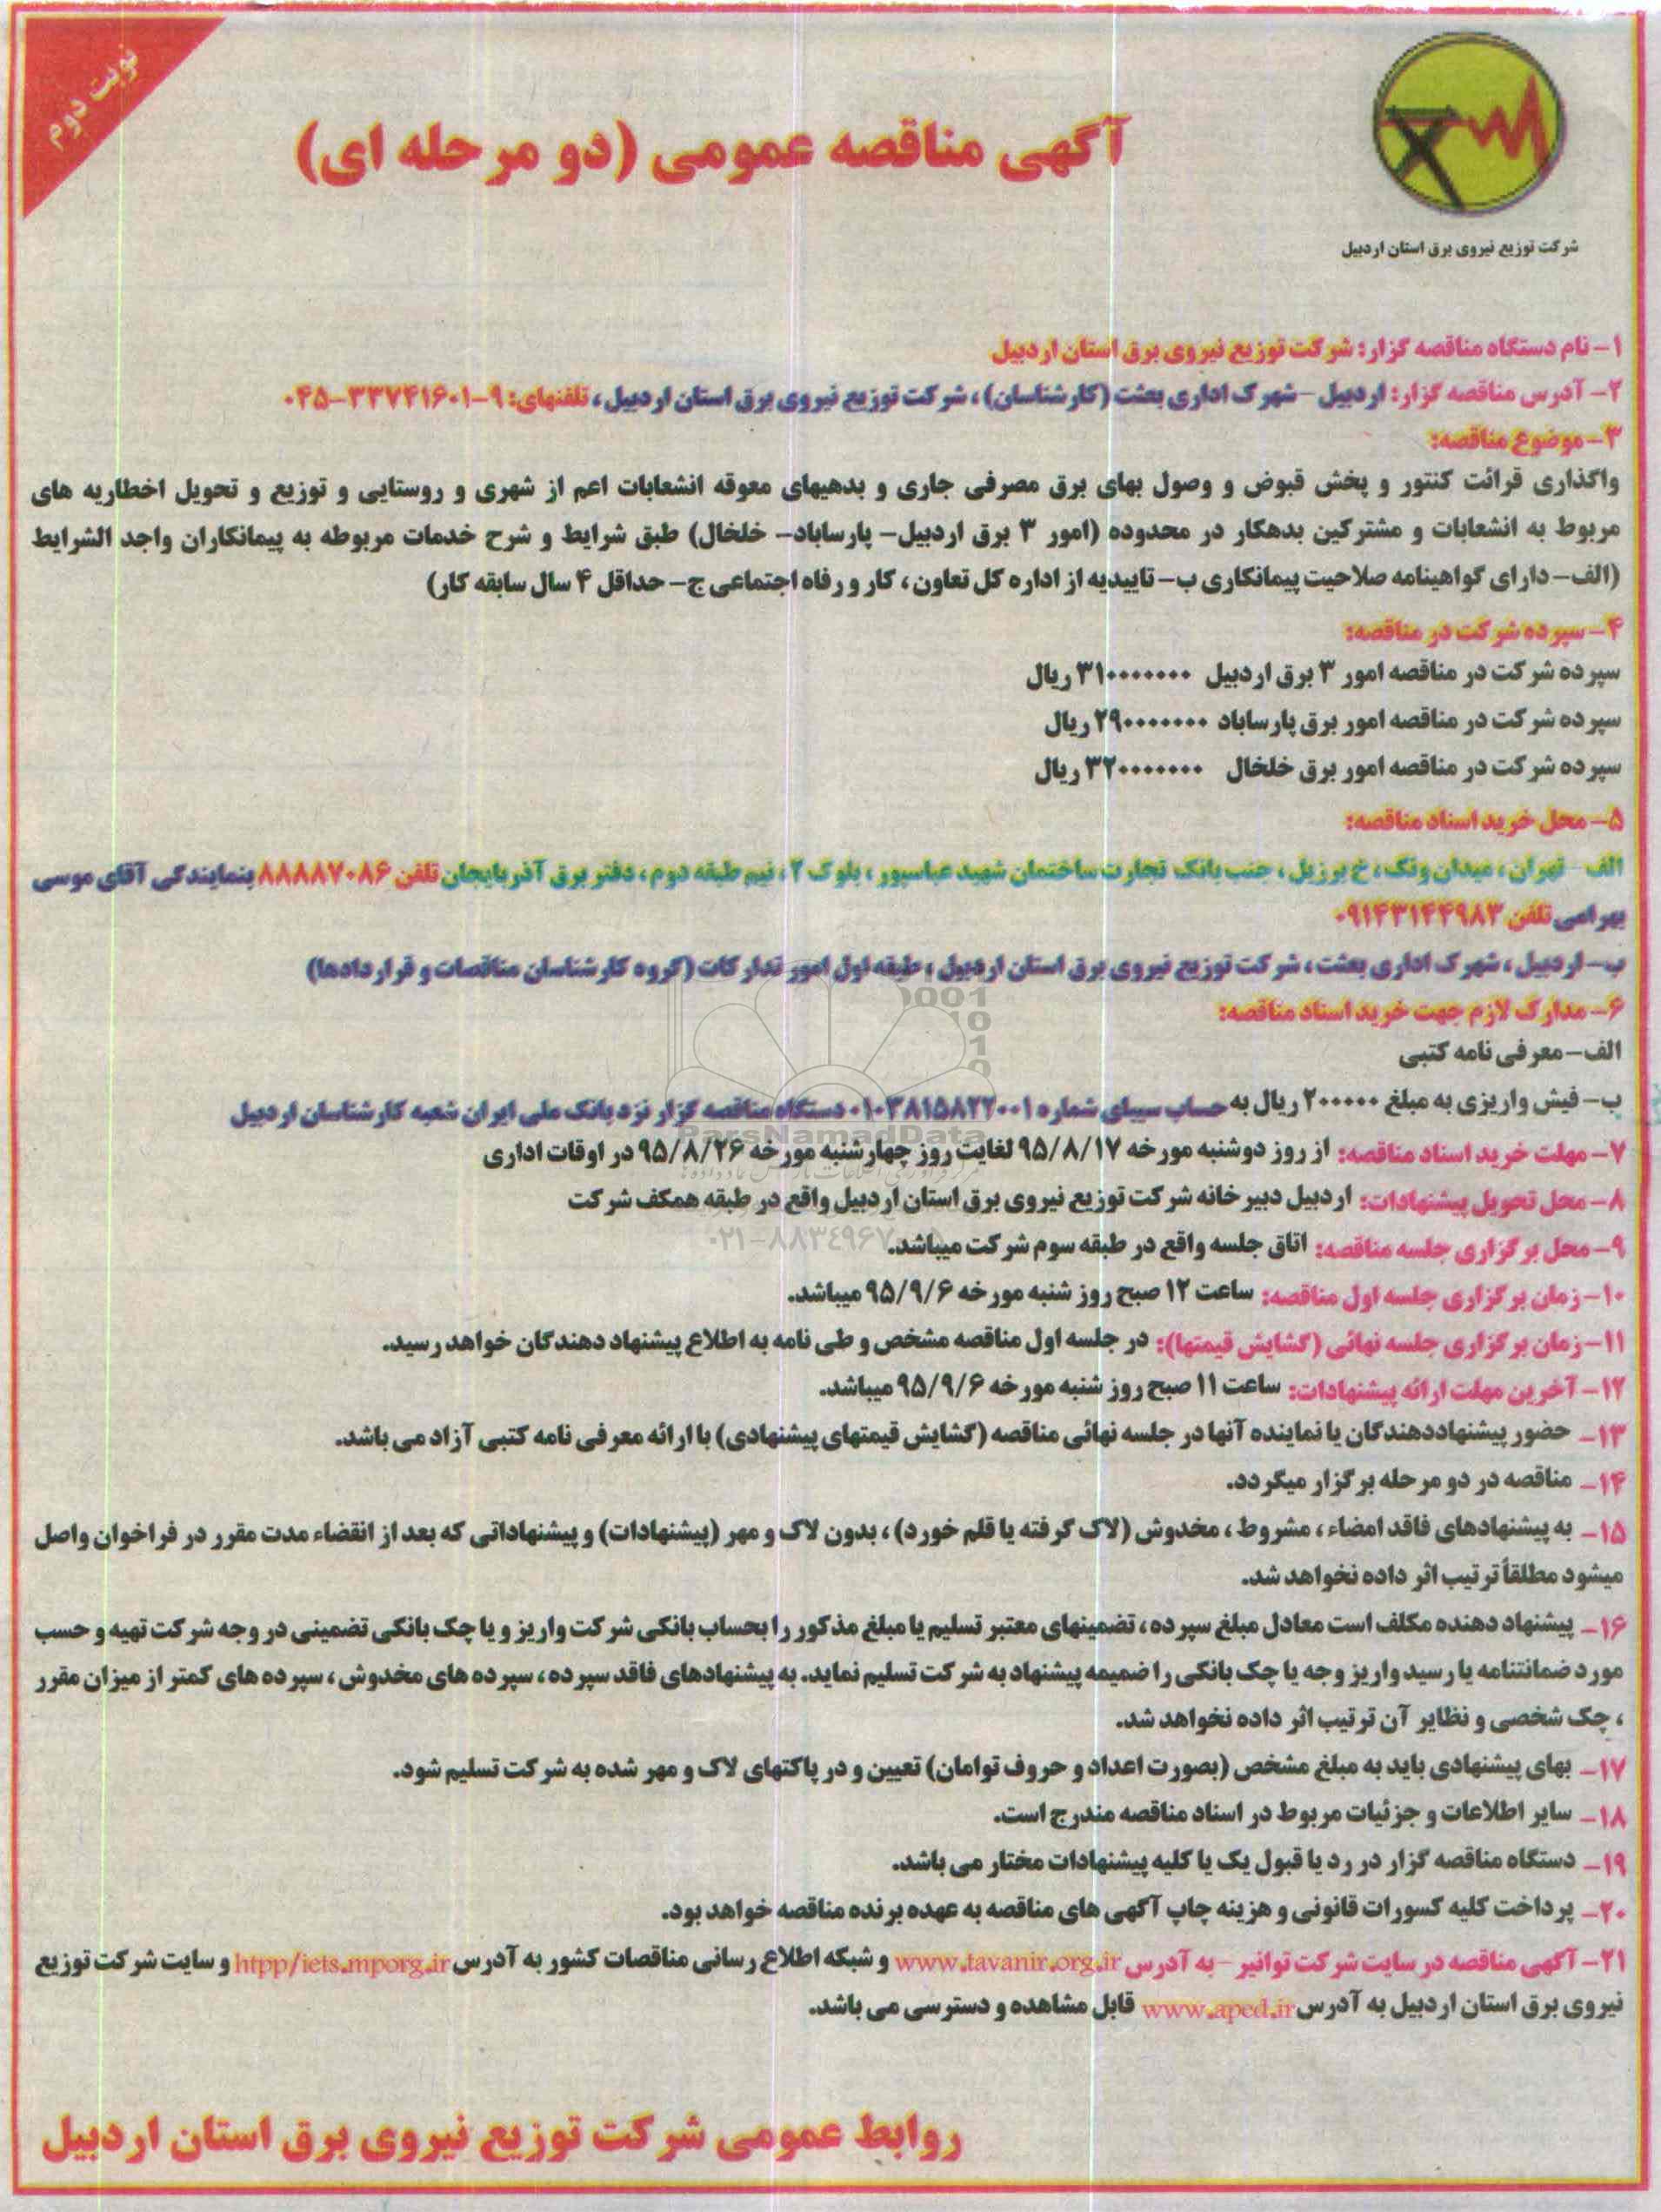 نوبت دوم
آگهی مناقصه عمومی (دو مرحله ای)
شرکت توزیع نیروی برق استان اردبیل
۱- نام دستگاه مناقصه گزار: شرکت توزیع نیروی برق استان اردبیل
۲- آدرس مناقصه گزار: اردبیل - شهرک اداری بعثت (کارشناسان)، شرکت توزیع نیروی برق استان اردبیل، تلفنهای: ۹-۳۳۷۴۱۶۰۱-۰۴۵
۳- موضوع مناقصه:
واگذاری قرائت کنتور و پخش قبوض و وصول بهای برق مصرفی جاری و بدهیهای معوقه انشعابات اعم از شهری و روستایی و توزیع و تحویل اخطاریه های
مربوط به انشعابات و مشترکین بدهکار در محدوده (امور ۳ برق اردبیل- پارساباد- خلخال) طبق شرایط و شرح خدمات مربوطه به پیمانکاران واجد الشرایط
(الف- دارای گواهینامه صلاحیت پیمانکاری ب- تاییدیه از اداره کل تعاون، کار و رفاه اجتماعی ج- حداقل ۴ سال سابقه کار)
۴- سپرده شرکت در مناقصه:
سپرده شرکت در مناقصه امور ۳ برق اردبیل ۳۱۰۰۰۰۰۰۰ ریال
سپرده شرکت در مناقصه امور برق پارساباد ۲۹۰۰۰۰۰۰۰ ریال
سپرده شرکت در مناقصه امور برق خلخال ۳۲۰۰۰۰۰۰۰ ریال
۵- محل خرید اسناد مناقصه:
الف - تهران، میدان ونک، خ برزیل، جنب بانک تجارت ساختمان شهید عباسپور، بلوک ۲، نیم طبقه دوم، دفتر برق آذربایجان تلفن ۸۸۸۸۷۰۸۶ بنمایندگی آقای موسی
بهرامی تلفن ۰۹۱۴۳۱۴۴۹۸۳
ب- اردبیل، شهرک اداری بعثت، شرکت توزیع نیروی برق استان اردبیل، طبقه اول امور تدارکات (گروه کارشناسان مناقصات و قراردادها)
۶- مدارک لازم جهت خرید اسناد مناقصه:
الف- معرفی نامه کتبی
ب- فیش واریزی به مبلغ ۲۰۰۰۰۰ ریال به حساب سیبای شماره ۰۱۰۳۸۱۵۸۲۲۰۰۱ دستگاه مناقصه گزار نزد بانک ملی ایران شعبه کارشناسان اردبیل
ParsNamadData
۷- مهلت خرید اسناد مناقصه: از روز دوشنبه مورخه ۹۵/۸/۱۷ لغایت روز چهارشنبه مورخه ۹۵/۸/۲۶ در اوقات اداری
۸- محل تحویل پیشنهادات: اردبیل دبیرخانه شرکت توزیع نیروی برق استان اردبیل واقع در طبقه همکف شرکت
۹- محل برگزاری جلسه مناقصه: اتاق جلسه واقع در طبقه سوم شرکت میباشد.
۱۰- زمان برگزاری جلسه اول مناقصه: ساعت ۱۲ صبح روز شنبه مورخه ۹۵/۹/۶ میباشد.
۱۱- زمان برگزاری جلسه نهائی (گشایش قیمتها): در جلسه اول مناقصه مشخص و طی نامه به اطلاع پیشنهاد دهندگان خواهد رسید.
۱۲- آخرین مهلت ارائه پیشنهادات: ساعت ۱۱ صبح روز شنبه مورخه ۹۵/۹/۶ میباشد.
۱۳- حضور پیشنهاددهندگان یا نماینده آنها در جلسه نهائی مناقصه (گشایش قیمتهای پیشنهادی) با ارائه معرفی نامه کتبی آزاد می باشد.
۱۴- مناقصه در دو مرحله برگزار میگردد.
۱۵- به پیشنهادهای فاقد امضاء، مشروط، مخدوش (لاک گرفته یا قلم خورد)، بدون لاک و مهر (پیشنهادات) و پیشنهاداتی که بعد از انقضاء مدت مقرر در فراخوان واصل
میشود مطلقاً ترتیب اثر داده نخواهد شد.
۱۶- پیشنهاد دهنده مکلف است معادل مبلغ سپرده، تضمینهای معتبر تسلیم یا مبلغ مذکور را بحساب بانکی شرکت واریز و یا چک بانکی تضمینی در وجه شرکت تهیه و حسب
مورد ضمانتنامه یا رسید واریز وجه یا چک بانکی را ضمیمه پیشنهاد به شرکت تسلیم نماید. به پیشنهادهای فاقد سپرده، سپرده های مخدوش، سپرده های کمتر از میزان مقرر
، چک شخصی و نظایر آن ترتیب اثر داده نخواهد شد.
۱۷- بهای پیشنهادی باید به مبلغ مشخص (بصورت اعداد و حروف توامان) تعیین و در پاکتهای لاک و مهر شده به شرکت تسلیم شود.
۱۸- سایر اطلاعات و جزئیات مربوط در اسناد مناقصه مندرج است.
۱۹- دستگاه مناقصه گزار در رد یا قبول یک یا کلیه پیشنهادات مختار می باشد.
۲۰- پرداخت کلیه کسورات قانونی و هزینه چاپ آگهی های مناقصه به عهده برنده مناقصه خواهد بود.
۲۱- آگهی مناقصه در سایت شرکت توانیر - به آدرس www.tavanir.org.ir و شبکه اطلاع رسانی مناقصات کشور به آدرس htpp/iets.mporg.ir و سایت شرکت توزیع
نیروی برق استان اردبیل به آدرس www.aped.ir قابل مشاهده و دسترسی می باشد.
روابط عمومی شرکت توزیع نیروی برق استان اردبیل